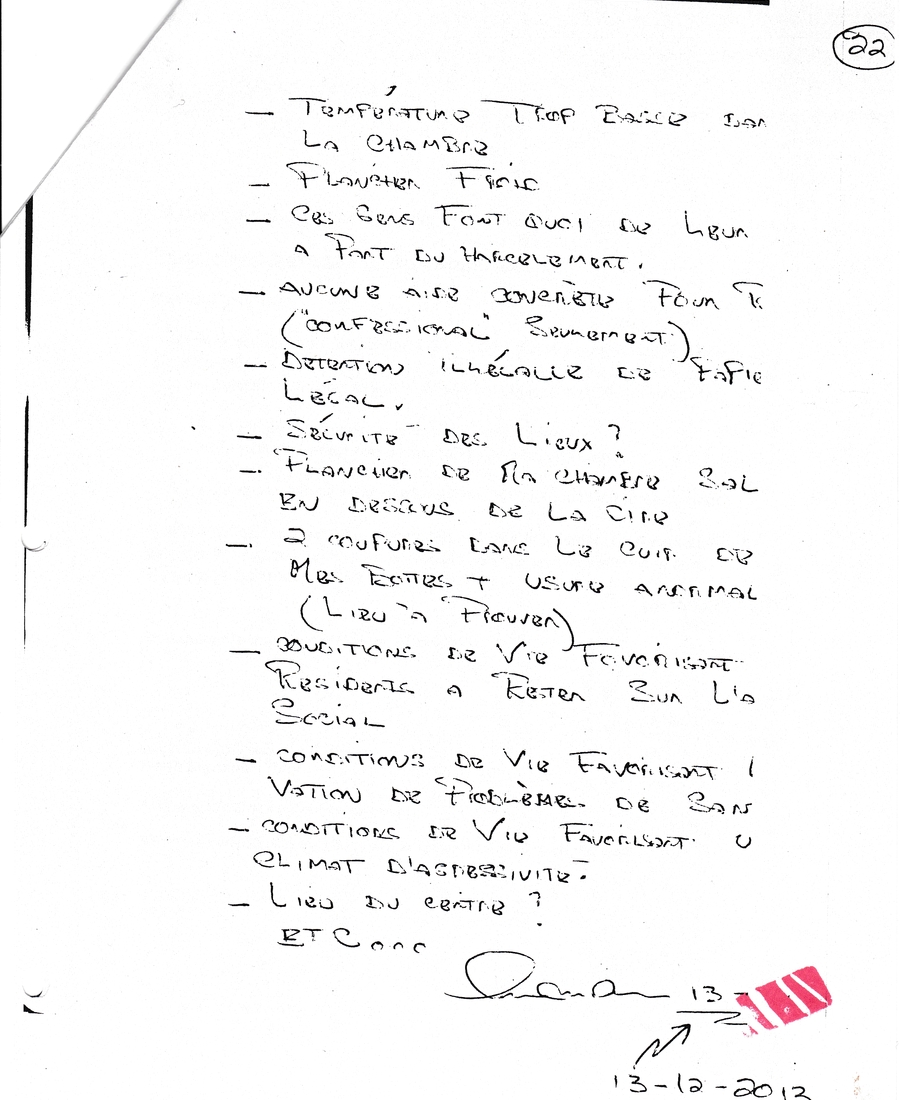 22
— TEMPÉRATURE TROP BASSE DAN
LA CHAMBRE
— PLANCHER FROID
— CES GENS FONT QUOI DE LEUR
A PART DU HARCELEMENT.
— AUCUNE AIDE CONCRÈTE POUR
("CONFESSIONAL" SEULEMENT)
— DETENTION ILLÉGALE DE PAPIE
LÉGAL.
— SÉCURITÉ DES LIEUX ?
— PLANCHER DE MA CHAMBRE SAL
EN DESSOUS DE LA CIRE
— 2 COUPURES DANS LE CUIR DE
MES BOTTES + USURE ANORMAL
(LIEU À PROUVER)
— CONDITIONS DE VIE FAVORISANT
RESIDENTS A RESTER SUR L'A
SOCIAL
— CONDITIONS DE VIE FAVORISANT
VATION DE PROBLÈMES DE SAN
— CONDITIONS DE VIE FAVORISANT U
CLIMAT D'AGRESSIVITÉ.
— LIEU DU CENTRE ?
ETC...
13-
13-12-2013